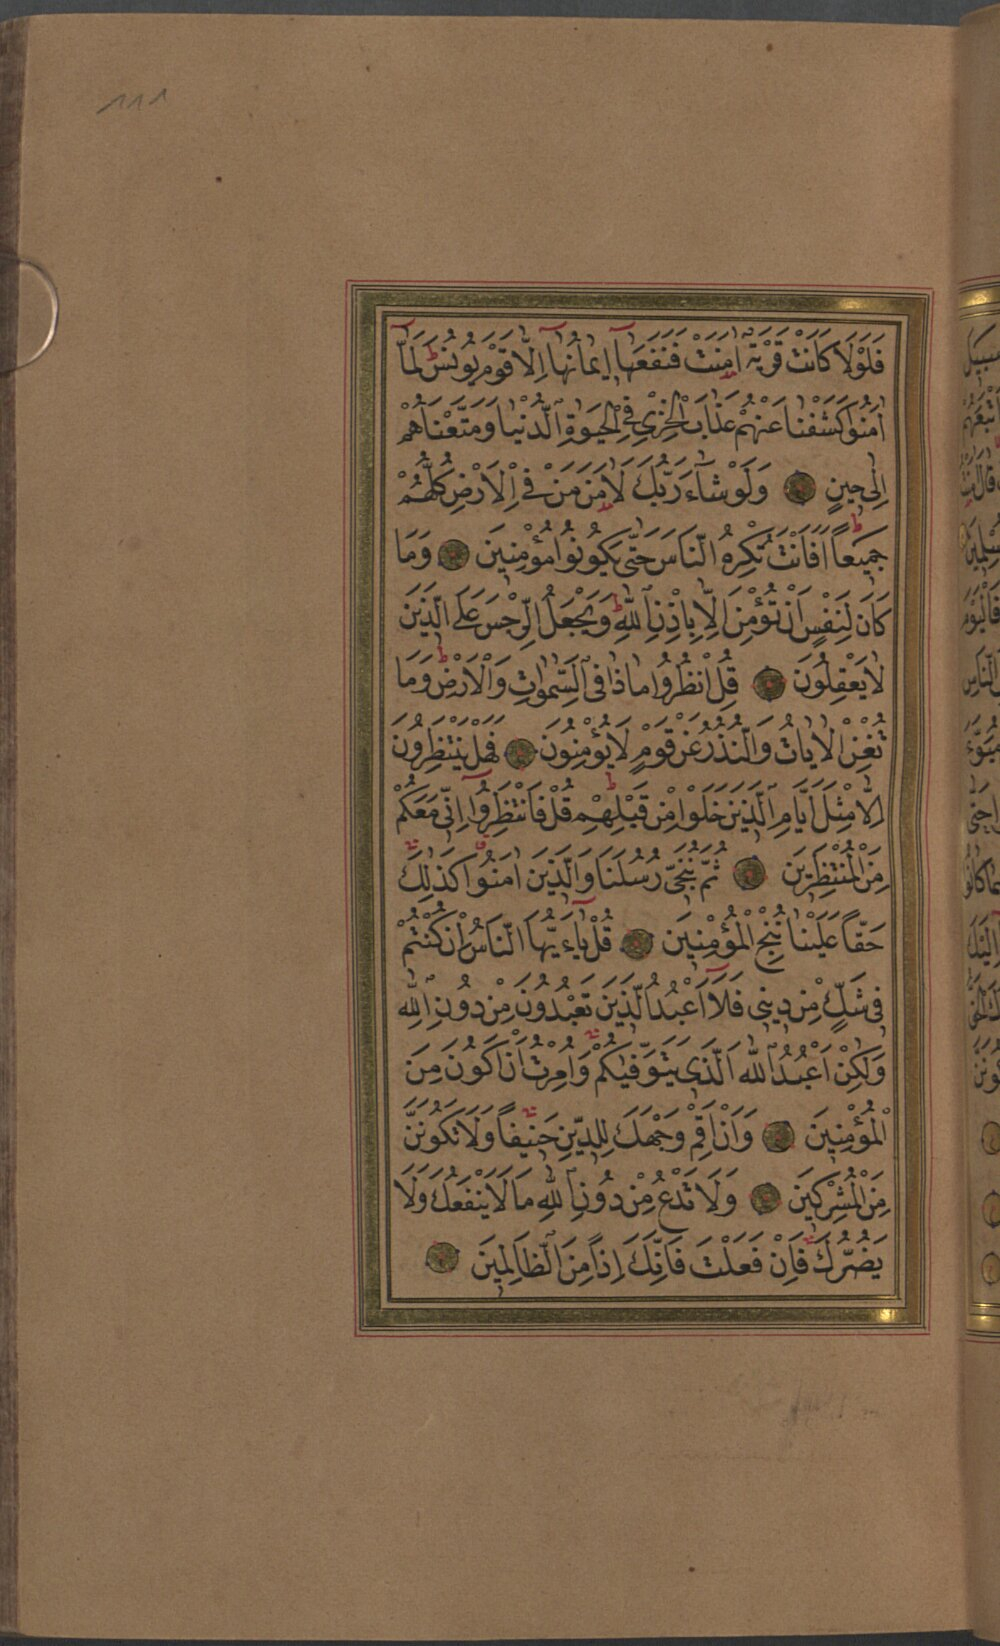 ١١١
فَلَوْلَا كَانَتْ قَرْيَةٌ اٰمَنَتْ فَنَفَعَهَٓا ا۪يمَانُهَٓا اِلَّا قَوْمَ يُونُسَۜ لَمَّٓا
اٰمَنُوا كَشَفْنَا عَنْهُمْ عَذَابَ الْخِزْيِ فِي الْحَيٰوةِ الدُّنْيَا وَمَتَّعْنَاهُمْ
اِلٰى ح۪ينٍ وَلَوْ شَٓاءَ رَبُّكَ لَاٰمَنَ مَنْ فِي الْاَرْضِ كُلُّهُمْ
جَم۪يعًاۜ اَفَاَنْتَ تُكْرِهُ النَّاسَ حَتّٰى يَكُونُوا مُؤْمِن۪ينَ وَمَا
كَانَ لِنَفْسٍ اَنْ تُؤْمِنَ اِلَّا بِاِذْنِ اللّٰهِۜ وَيَجْعَلُ الرِّجْسَ عَلَى الَّذ۪ينَ
لَا يَعْقِلُونَ قُلِ انْظُرُوا مَاذَا فِي السَّمٰوَاتِ وَالْاَرْضِۜ وَمَا
تُغْنِي الْاٰيَاتُ وَالنُّذُرُ عَنْ قَوْمٍ لَا يُؤْمِنُونَ فَهَلْ يَنْتَظِرُونَ
اِلَّا مِثْلَ اَيَّامِ الَّذ۪ينَ خَلَوْا مِنْ قَبْلِهِمْۜ قُلْ فَانْتَظِرُٓوا اِنّ۪ي مَعَكُمْ
مِنَ الْمُنْتَظِر۪ينَ ثُمَّ نُنَجّ۪ي رُسُلَنَا وَالَّذ۪ينَ اٰمَنُوا كَذٰلِكَۚ
حَقًّا عَلَيْنَا نُنْجِ الْمُؤْمِن۪ينَ قُلْ يَٓاءَيُّهَا النَّاسُ اِنْ كُنْتُمْ
ف۪ي شَكٍّ مِنْ د۪ين۪ي فَلَٓا اَعْبُدُ الَّذ۪ينَ تَعْبُدُونَ مِنْ دُونِ اللّٰهِ
وَلٰكِنْ اَعْبُدُ اللّٰهَ الَّذ۪ي يَتَوَفّٰيكُمْۚ وَاُمِرْتُ اَنْ اَكُونَ مِنَ
الْمُؤْمِن۪ينَ وَاَنْ اَقِمْ وَجْهَكَ لِلدّ۪ينِ حَن۪يفًاۚ وَلَا تَكُونَنَّ
مِنَ الْمُشْرِك۪ينَ وَلَا تَدْعُ مِنْ دُونِ اللّٰهِ مَا لَا يَنْفَعُكَ وَلَا
يَضُرُّكَۚ فَاِنْ فَعَلْتَ فَاِنَّكَ اِذًا مِنَ الظَّالِم۪ينَ